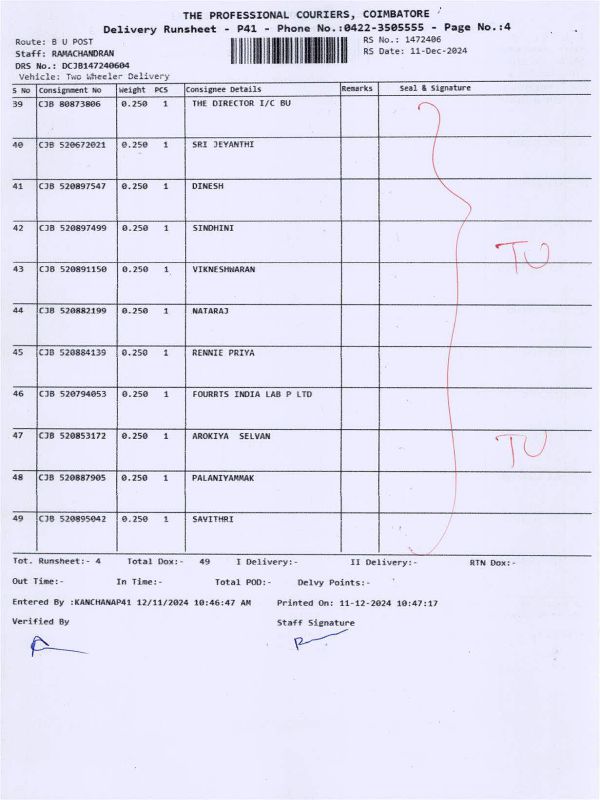 THE PROFESSIONAL COURIERS, COIMBATORE
Delivery Runsheet - P41 - Phone No.:0422-3505555 - Page No.:4
Route: B U POST RS No.: 1472406
Staff: RAMACHANDRAN RS Date: 11-Dec-2024
DRS No.: DCJB147240604
Vehicle: Two Wheeler Delivery
S No Consignment No Weight PCS Consignee Details Remarks Seal & Signature
39 CJB 80873806 0.250 1 THE DIRECTOR I/C BU
40 CJB 520672021 0.250 1 SRI JEYANTHI
41 CJB 520897547 0.250 1 DINESH
42 CJB 520897499 0.250 1 SINDHINI
TU
43 CJB 520891150 0.250 1 VIKNESHWARAN
44 CJB 520882199 0.250 1 NATARAJ
45 CJB 520884139 0.250 1 RENNIE PRIYA
46 CJB 520794053 0.250 1 FOURRTS INDIA LAB P LTD
47 CJB 520853172 0.250 1 AROKIYA SELVAN
TU
48 CJB 520887905 0.250 1 PALANIYAMMAK
49 CJB 520895042 0.250 1 SAVITHRI
Tot. Runsheet:- 4 Total Dox:- 49 I Delivery:- II Delivery:- RTN Dox:-
Out Time:- In Time:- Total POD:- Delvy Points:-
Entered By :KANCHANAP41 12/11/2024 10:46:47 AM Printed On: 11-12-2024 10:47:17
Verified By Staff Signature